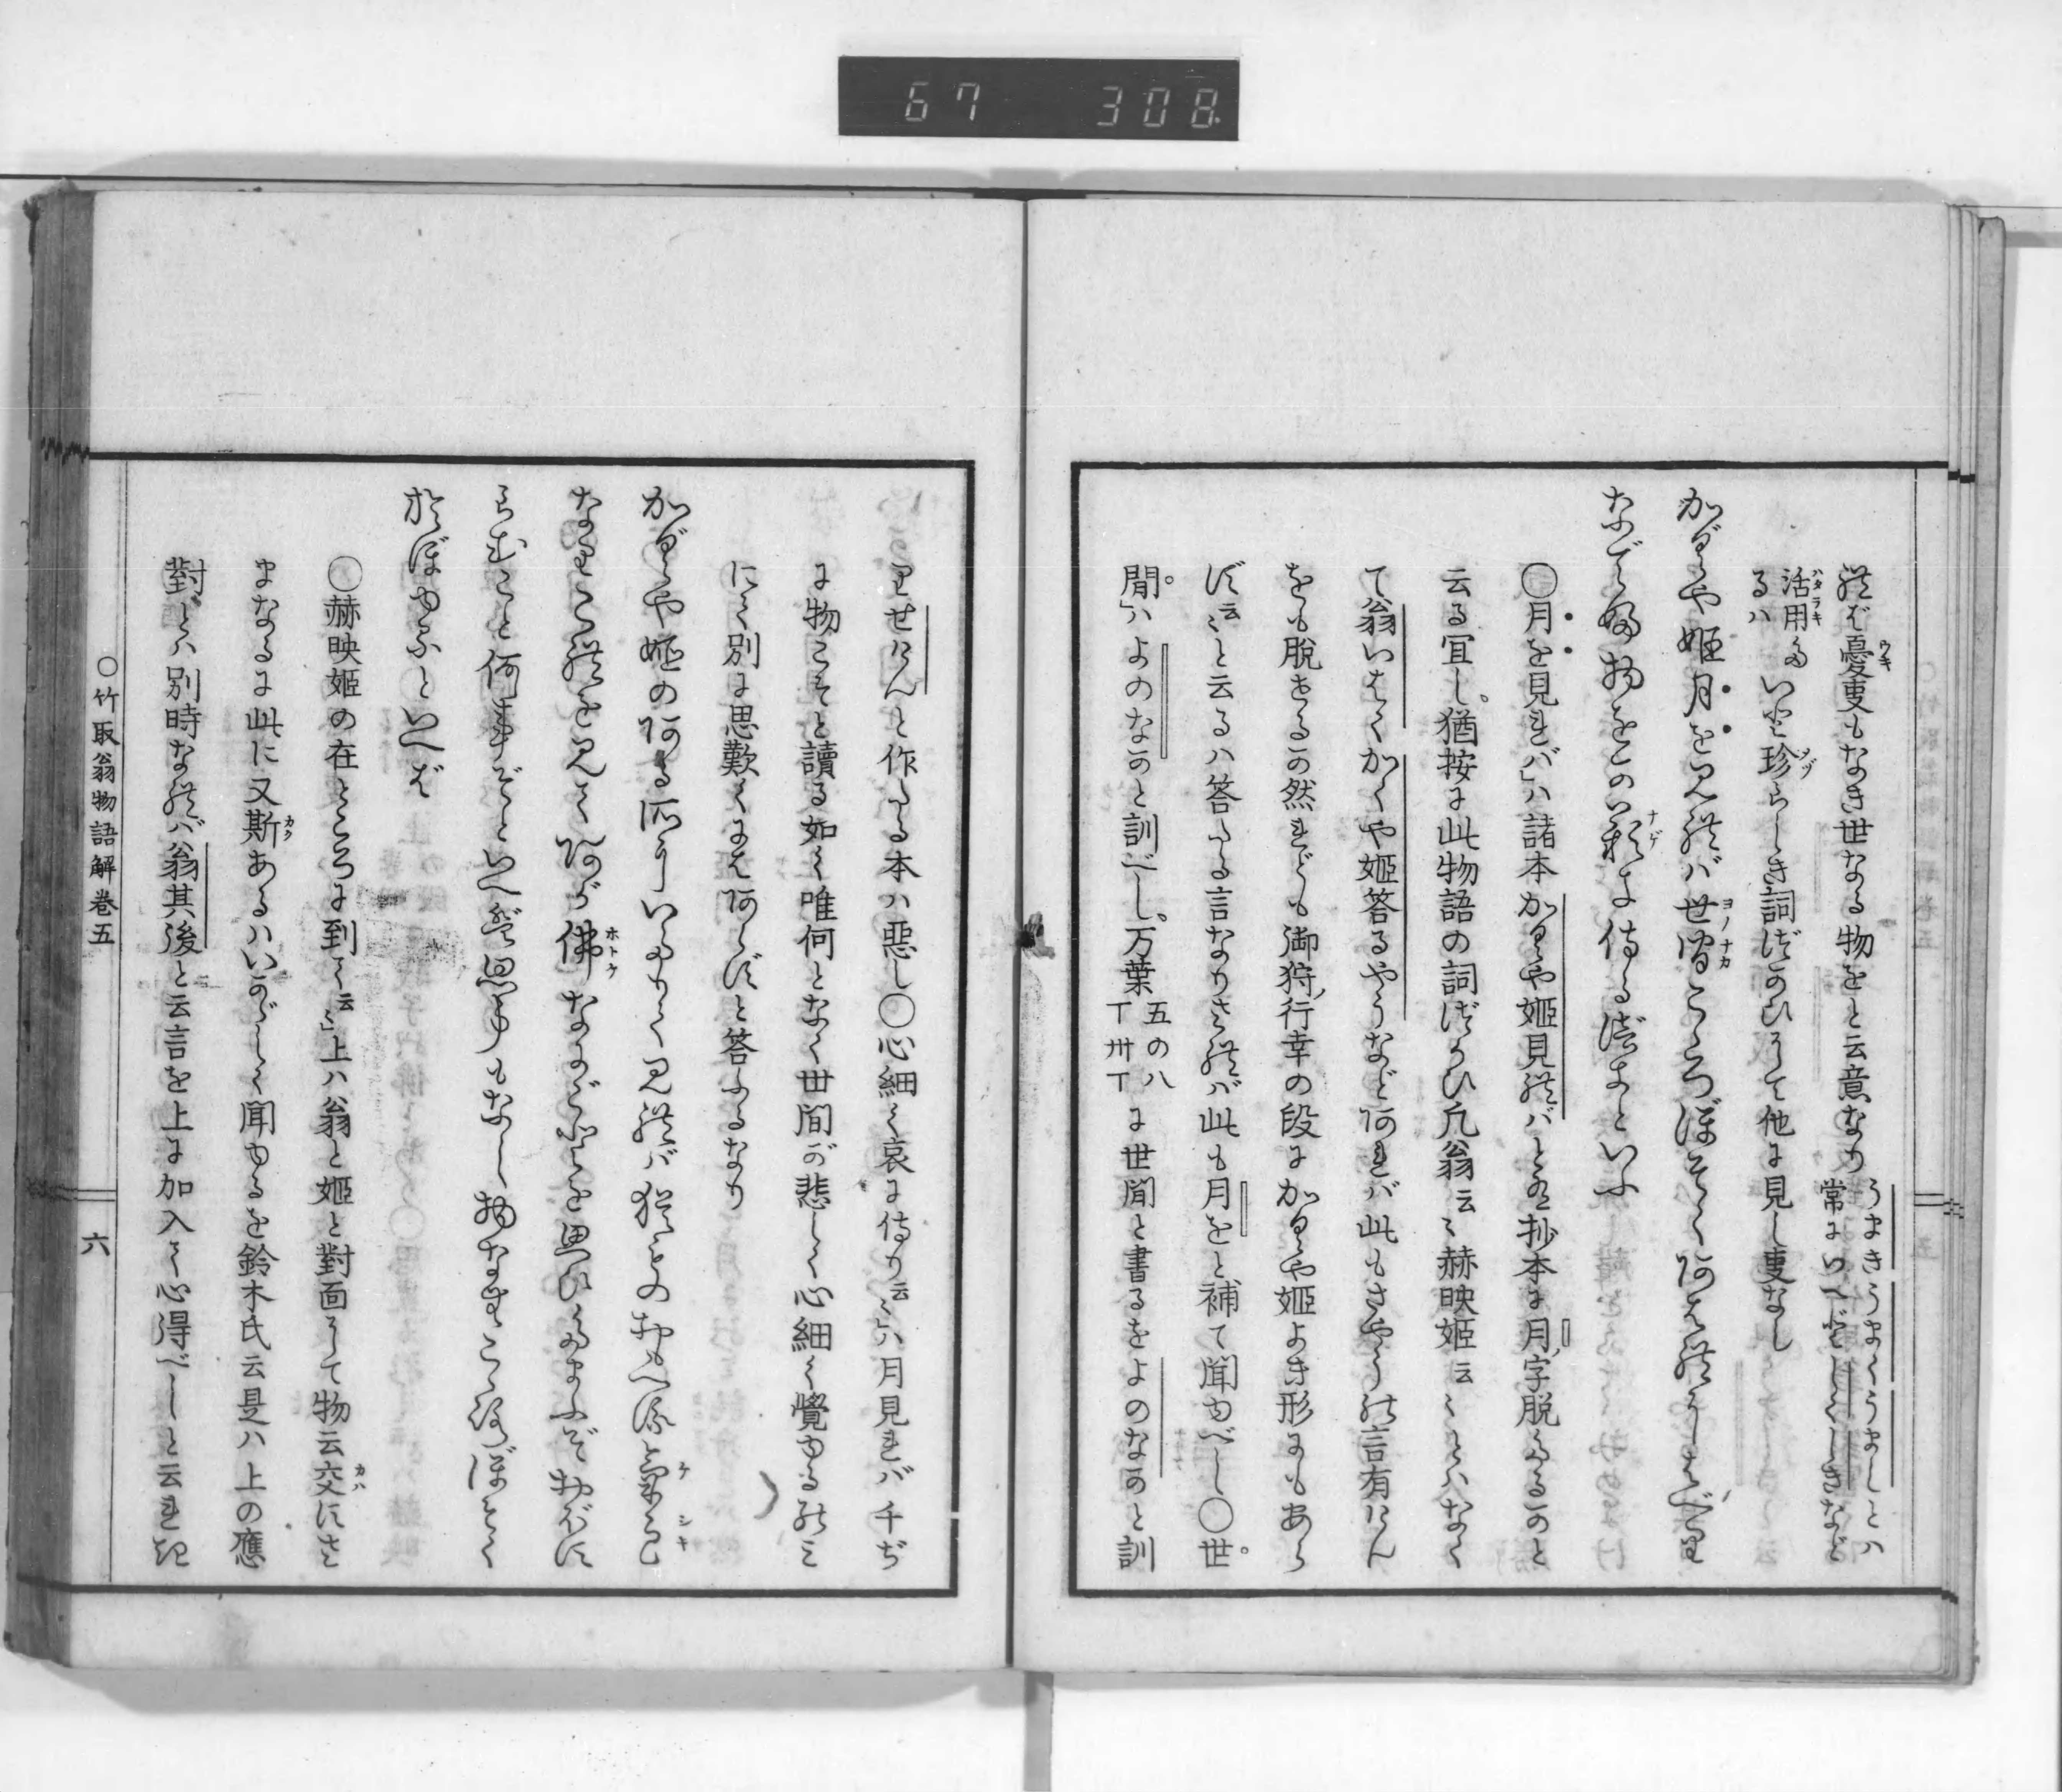 67 308
れば憂叓もなき世なる物をと云意なり うまきうまくうましとハ
常にいへどしくしきなど
活用たるハいと珍らしき詞づかひにて他に見し叓なし
かぐや姫月を見れバ世間こゝろぼそくあはれにはべり
なでふ物をかなげき侍るべきといふ
〇月を見れバハ諸本かぐや姫見れバとあり抄本に月字脱たるかと
云る宜し猶按に此物語の詞づかひ凡翁云ミ赫映姫云ミとハなく
て翁いはくかくや姫答るやうなどあれバ此もさやうの言有けん
をも脱きるか然れども御狩行幸の段にかぐや姫よき形にもあら
ず云ミと云るハ答たる言なりされバ此も月をと補て聞ゆべし〇世
間ハよのなかと訓べし万葉 五の八丁卅丁 に世間と書るをよのなかと訓
りせけんと作たる本ハ悪し〇心細く哀に侍り云ミハ月見れバ千ぢ
に物こそと讀る如く唯何となく世間が悲しく心細く覺ゆるのミ
にて別に思歎くにはあらずと答ふるなり
かぐや姫のある所にいたりて見れバ猶ものおもへる氣色
なりこれを見てあが佛なにごとを思ひたまふぞおぼす
らむこと何事ぞといへば思ふこともなし物なむこゝろぼそく
おぼゆるといへば
〇赫映姫の在ところに到て云ミ上ハ翁と姫と對面して物云交にさ
まなるに此に又斯あるハいかゞしく聞ゆるを鈴木氏云是ハ上の應
對とハ別時なれバ翁其後と云言を上に加入て心得べしと云れき
〇竹取翁物語解巻五
六